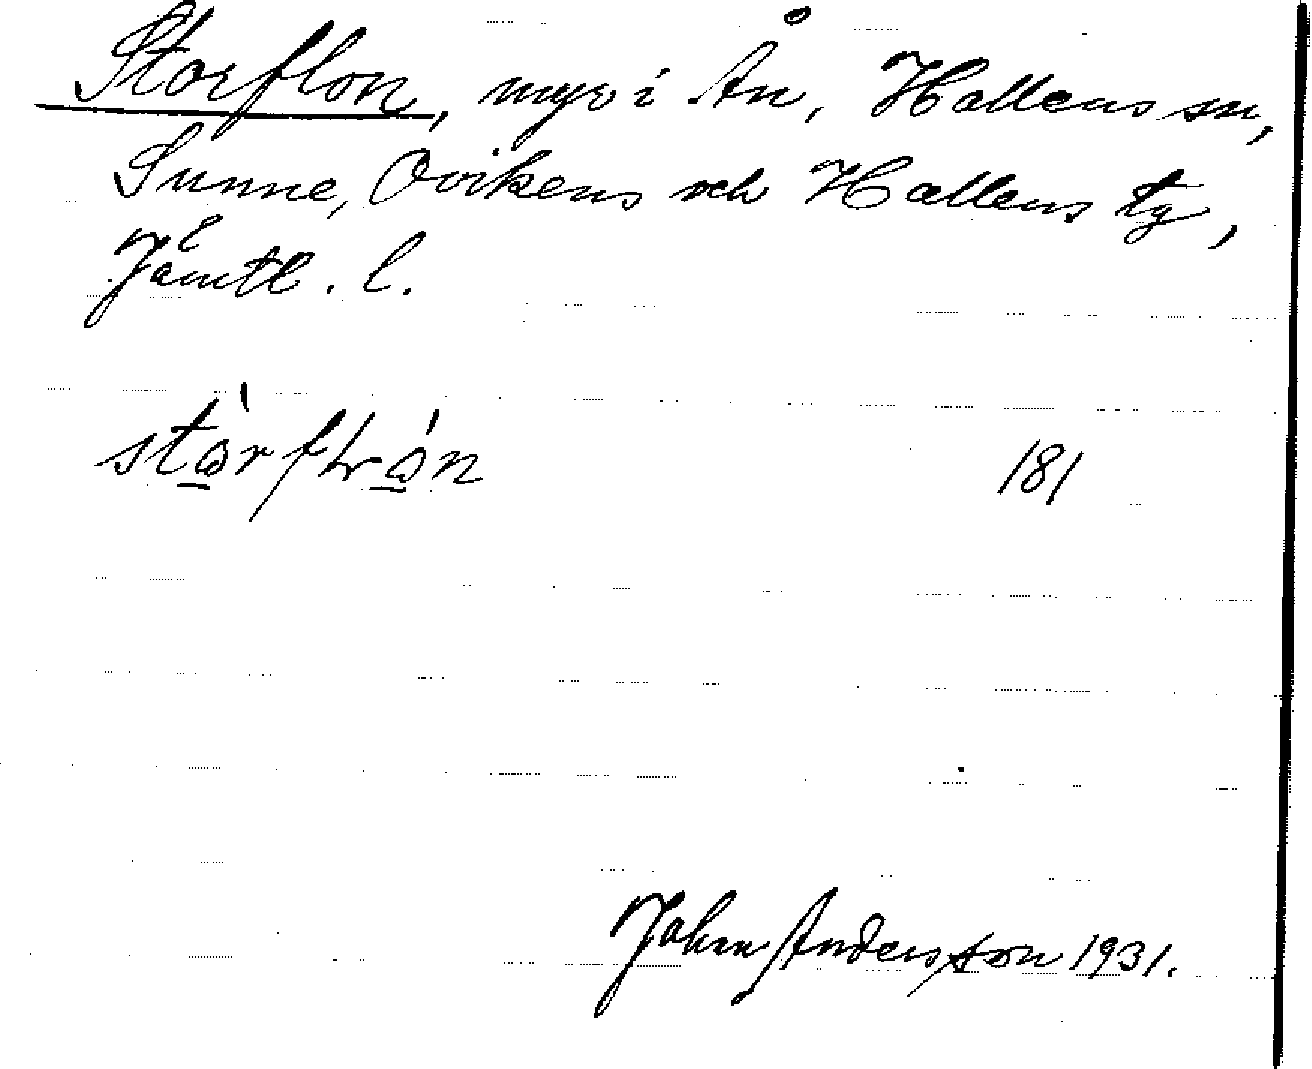 Storflon, myr i Ån, Hallens sn,
Sunne, Ovikens och Hallens tg,
Jämtl. l.
181
John Andersson 1931.